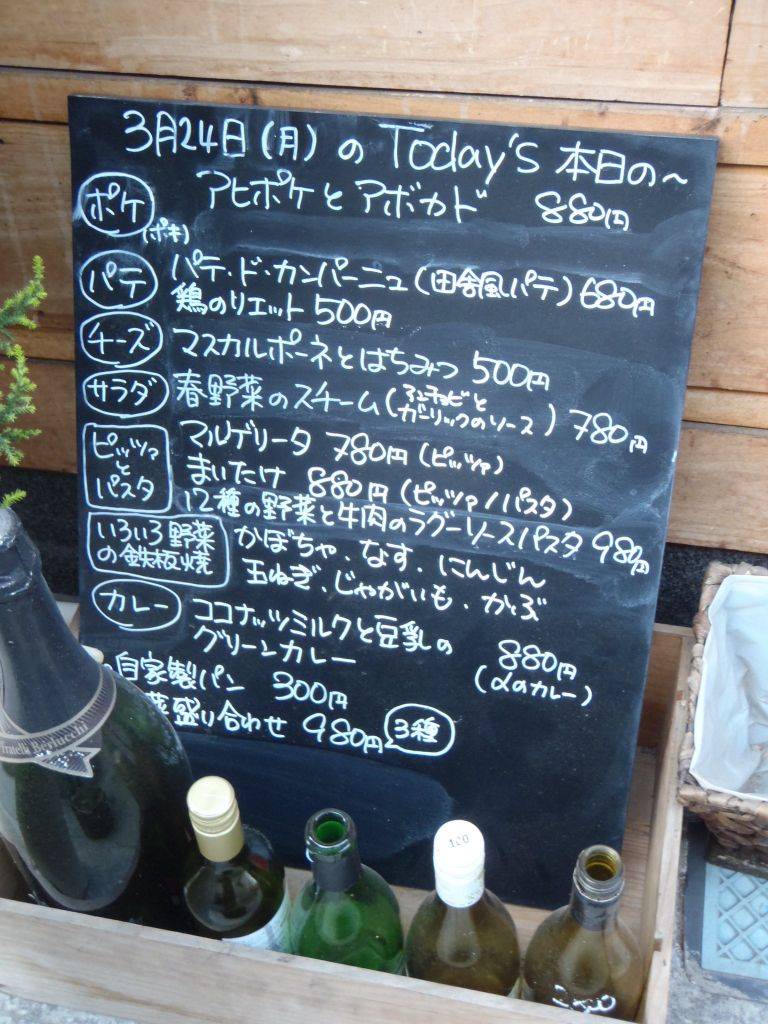 3月24日(月)の Today's 本日の〜
ポケ アヒポケとアボカド 880円
(ポキ)
パテ パテ・ド・カンパーニュ(田舎風パテ)680円
鶏のリエット 500円
チーズ マスカルポーネとはちみつ 500円
サラダ 春野菜のスチーム(アンチョビと ガーリックのソース)780円
ピッツァとパスタ マルゲリータ 780円(ピッツァ)
まいたけ 880円(ピッツァ/パスタ)
12種の野菜と牛肉のラグーソースパスタ 980円
いろいろ野菜の鉄板焼 かぼちゃ、なす、にんじん
玉ねぎ、じゃがいも、かぶ
カレー ココナッツミルクと豆乳の
グリーンカレー 880円
(αのカレー)
自家製パン 300円
菜盛り合わせ 980円 3種
Fratelli Berlucchi